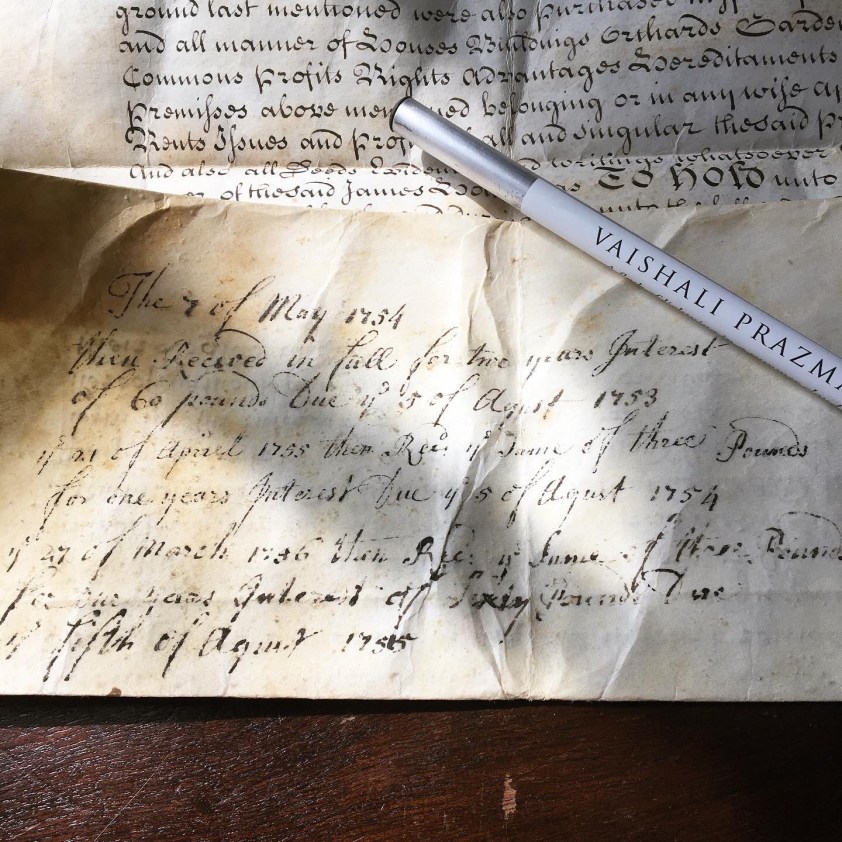 ground last mentioned were also purchased
and all manner of Houses Buildings Orchards Garde
Commons Profits Rights Advantages Hereditaments
Premisses above men ed belonging or in any wise ap
Rents Issues and Prof all and singular the said Pr
And also all Deeds Eviden writings whatsoever
of the said James To Hold unto
VAISHALI PRAZMA
The 7 of May 1754
then Receved in full for two years Interest
of 60 pounds Due ye 5 of Agust 1753
ye 21 of April 1755 then Recd ye Sume of three Pounds
for one years Interest Due ye 5 of Agust 1754
ye 27 of March 1756 then Recd ye Sume of three Pounds
for one years Interest of Sixty Pounds Due
ye fifth of Agust 1755